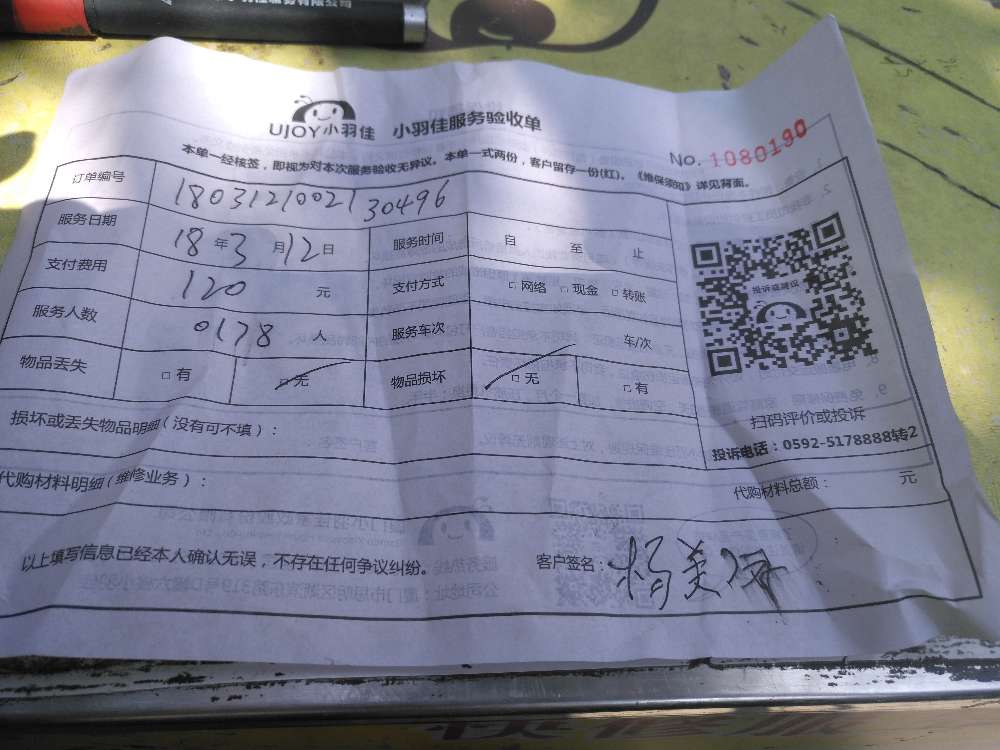 UJOY小羽佳 小羽佳服务验收单
No. 1080190
本单一经核签，即视为对本次服务验收无异议。本单一式两份，客户留存一份(红)。《维保须知》详见背面。
订单编号 18031210021 30496
服务日期 18 年 3 月 12 日 服务时间 自 至 止
支付费用 120 元 支付方式 □ 网络 □ 现金 □ 转账
投诉或建议
服务人数 0178 人 服务车次 车/次
物品丢失 □ 有 □ 无 物品损坏 □ 无 □ 有
扫码评价或投诉
损坏或丢失物品明细(没有可不填)：
投诉电话：0592-5178888转2
代购材料明细(维修业务)：
代购材料总额： 元
以上填写信息已经本人确认无误，不存在任何争议纠纷。
客户签名：